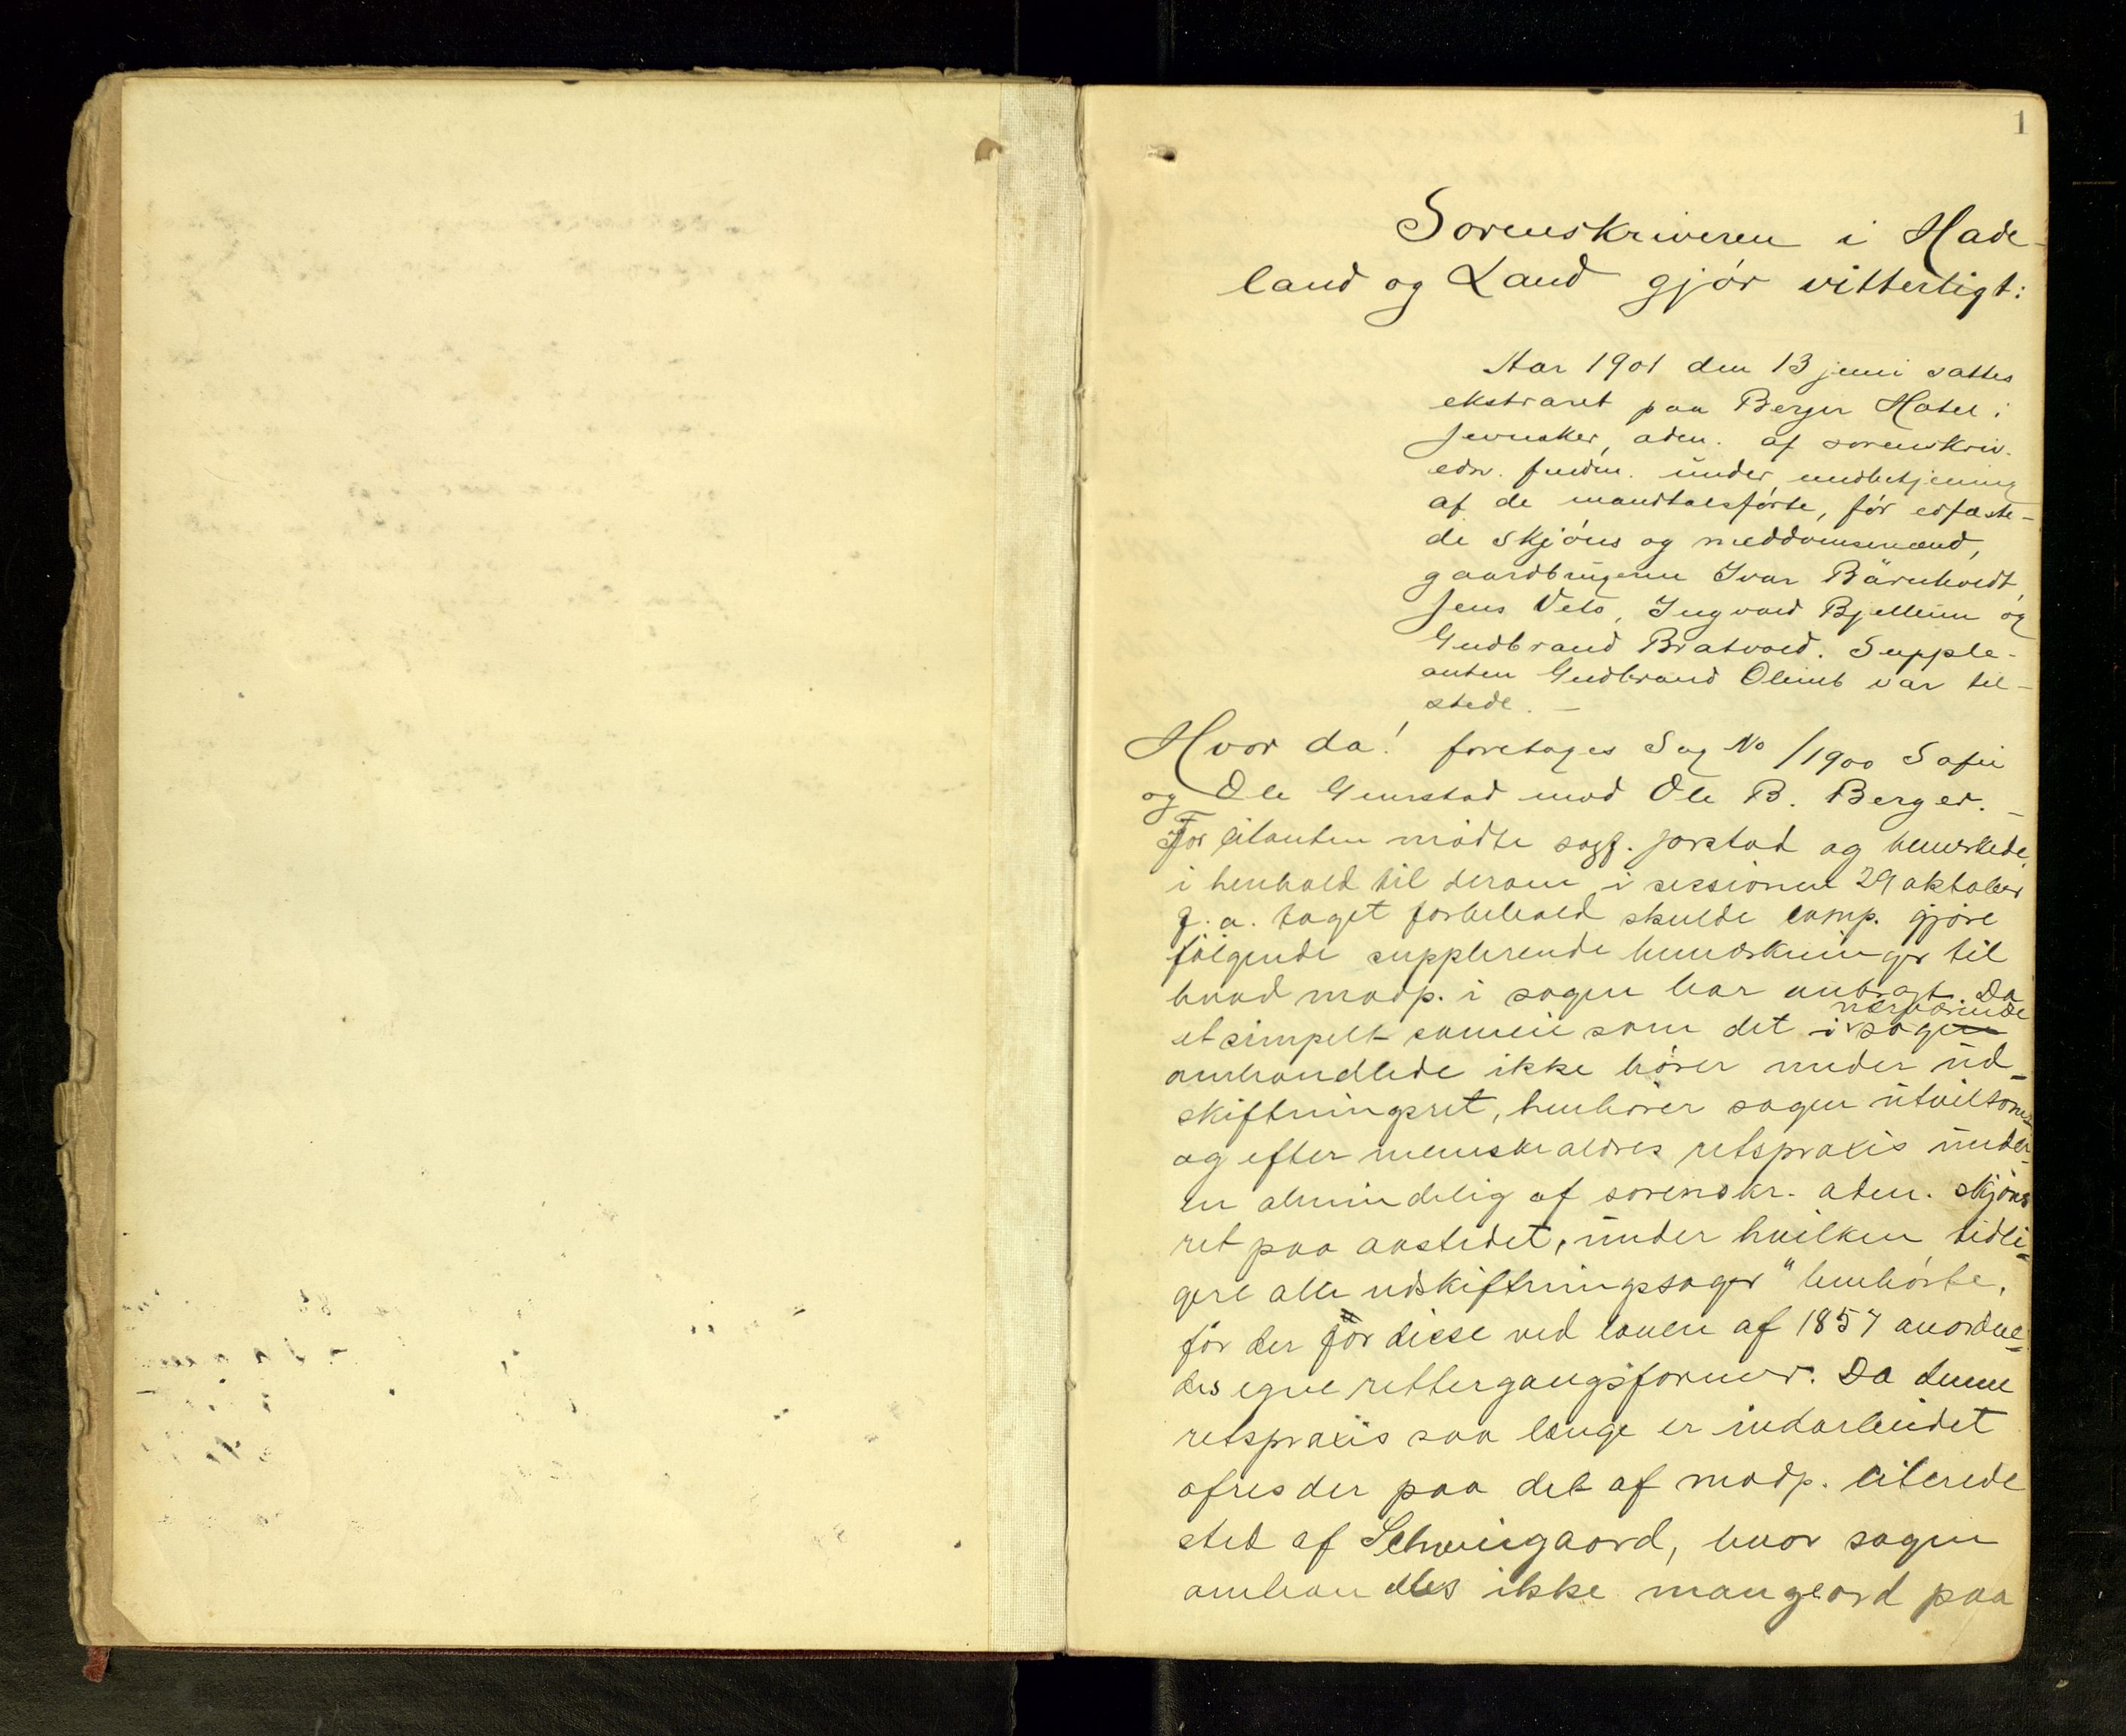 1
Sorenskriveren i Hade-
land og Land gjør vitterligt:
Aar 1901 den 13 juni sattes
ekstraret paa Berger Hotel i
Jevnaker, adm. af sorenskriv.
edsv. fuldm. under medbetjening
af de mandtalsførte, før edfæste-
de skjøns og meddomsmænd,
gaardbrugerne Ivar
Jens Velo, Ingvald Bjellum og
Gudbrand Bratvold. Supple-
anten Gudbrand Olimb var til-
stede. —
Hvor da! foretages Sag No /1900 Sofie
og Ole Gunstad mod Ole B. Berger. —
For citanten mødte sagf. Jorstad og bemerkede
i henhold til derom i sessionen 29 oktober
f. a. taget forbehold skulde comp. gjøre
følgende supplerende bemerkninger til
hvad modp. i sagen har anbragt. Da
nærværende
et simpelt sameie som det i sagen
omhandlede ikke hører under ud-
skiftningsret, henhører sagen utvilsomt
og efter menneskealdres retspraxis under
en almindelig af sorenskr. adm. skjøns
ret paa aastedet, under hvilken tidli-
gere alle udskiftningssager" henhørte,
før der for disse ved loven af 1857 anordne-
des egne rettergangsformer. Da denne
retspraxis saa længe er indarbeidet
ofres der paa det af modp. citerede
sted af Schweigaard, hvor sagen
omhandles ikke mange ord paa